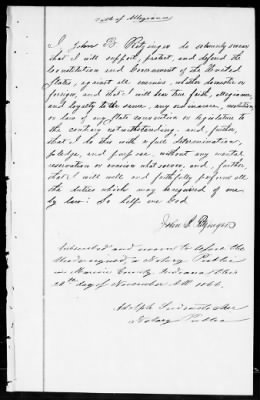 Oath of Allegiance
I John B Ritzinger do solemnly swear
that I will support, protect, and defend the
Constitution and Government of the United
States, against all enemies, whether domestic or
foreign, and that I will bear true faith, allegiance
and loyalty to the same, any ordinance, resolution
or law of any State convention or legislature to
the contrary notwithstanding. and, further,
that I do this with a full determination,
pledge, and purpose without any mental
reservation or evasion what soever, and, further,
that I will well and faithfully perform all
the duties which may be required of me
by law: So help me God
John B. Ritzinger
Subscribed and sworn to before the
Undersigned, a Notary Public
in Marion County Indiana this
20th day of November AD 1866.
Adolph
Notary Public